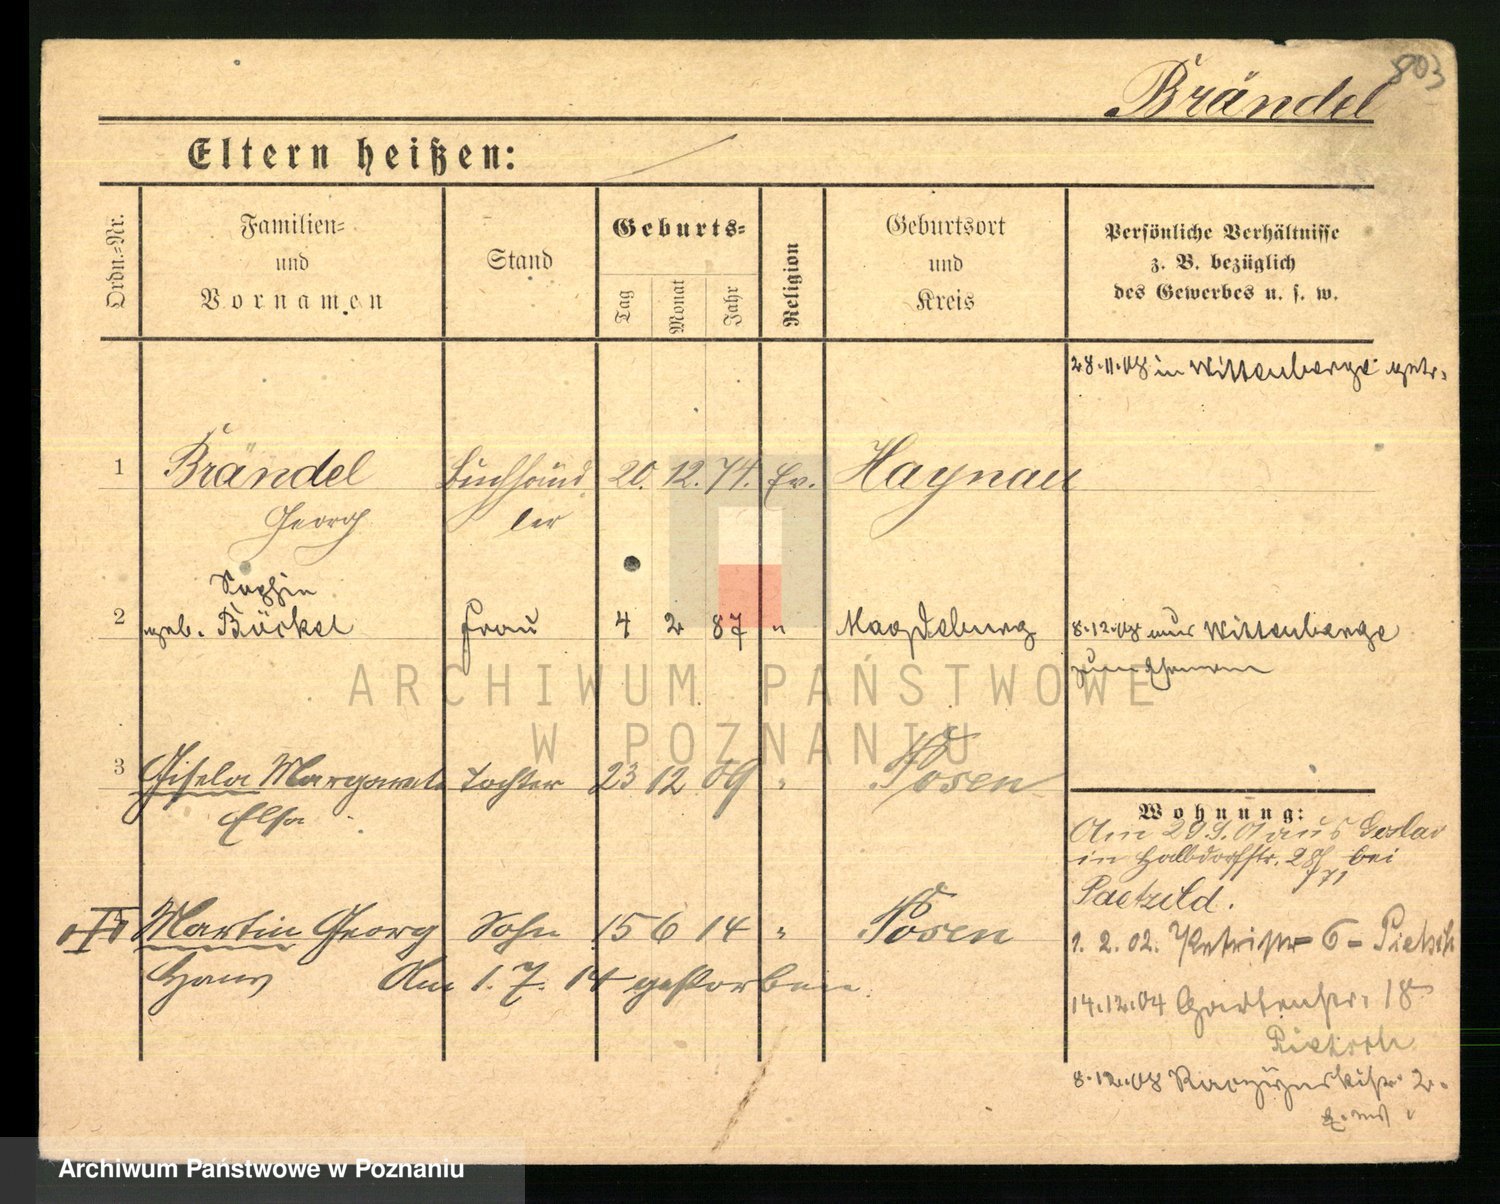 803
Brändel
Eltern heißen:
Ordn.=Nr.
Familien=
und
Vornamen
Stand
Geburts=
Tag
Monat
Jahr
Religion
Geburtsort
und
Kreis
Persönliche Verhältnisse
z. B. bezüglich
des Gewerbes u. s. w.
28.11.08 in Wittenberge getr.
1 Brändel Buchhänd 20. 12. 74. Ev. Haynau
Georg ler
Sophie
2 geb. Böckel Frau 4 2 87 " Magdeburg 8.12.08 aus Wittenberge
ARCHIWUM PAŃSTWOWE
W POZNANIU
3 Gisela Margarete Tochter 23 12 09 " Posen
Elsa
Wohnung:
Am 29.9.01 aus Goslar
in Halbdorfstr. bei
Paetzold.
Martin Georg Sohn 15 6 14 " Posen
1. 2. 02. 6 - Pietsch
Hans Am 1. 7. 14 gestorben
14.12.04 Gartenstr. 18
Pietsch
8.12.08 Raczynskistr. 2.
Archiwum Państwowe w Poznaniu